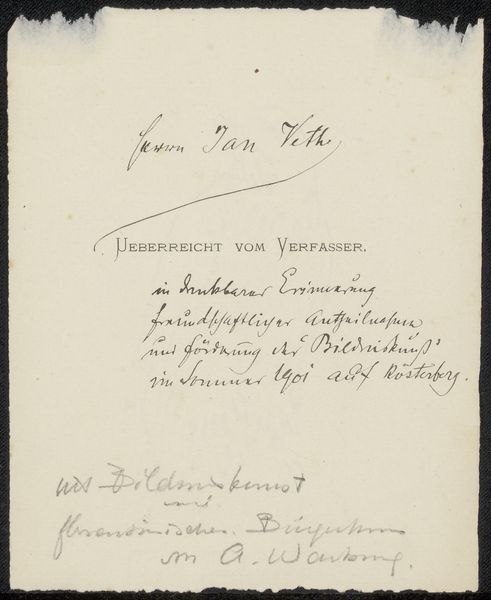 Herrn Jan Veth
UEBERREICHT VOM VERFASSER.
in dankbarer Erinnerung
freundschaftlicher Antheilnahme
und Förderung der "Bildniskunst"
im Sommer 1901 auf Kösterberg.
uit Bildniskunst
und
florentinisches Bürgertum
von A. Warburg.